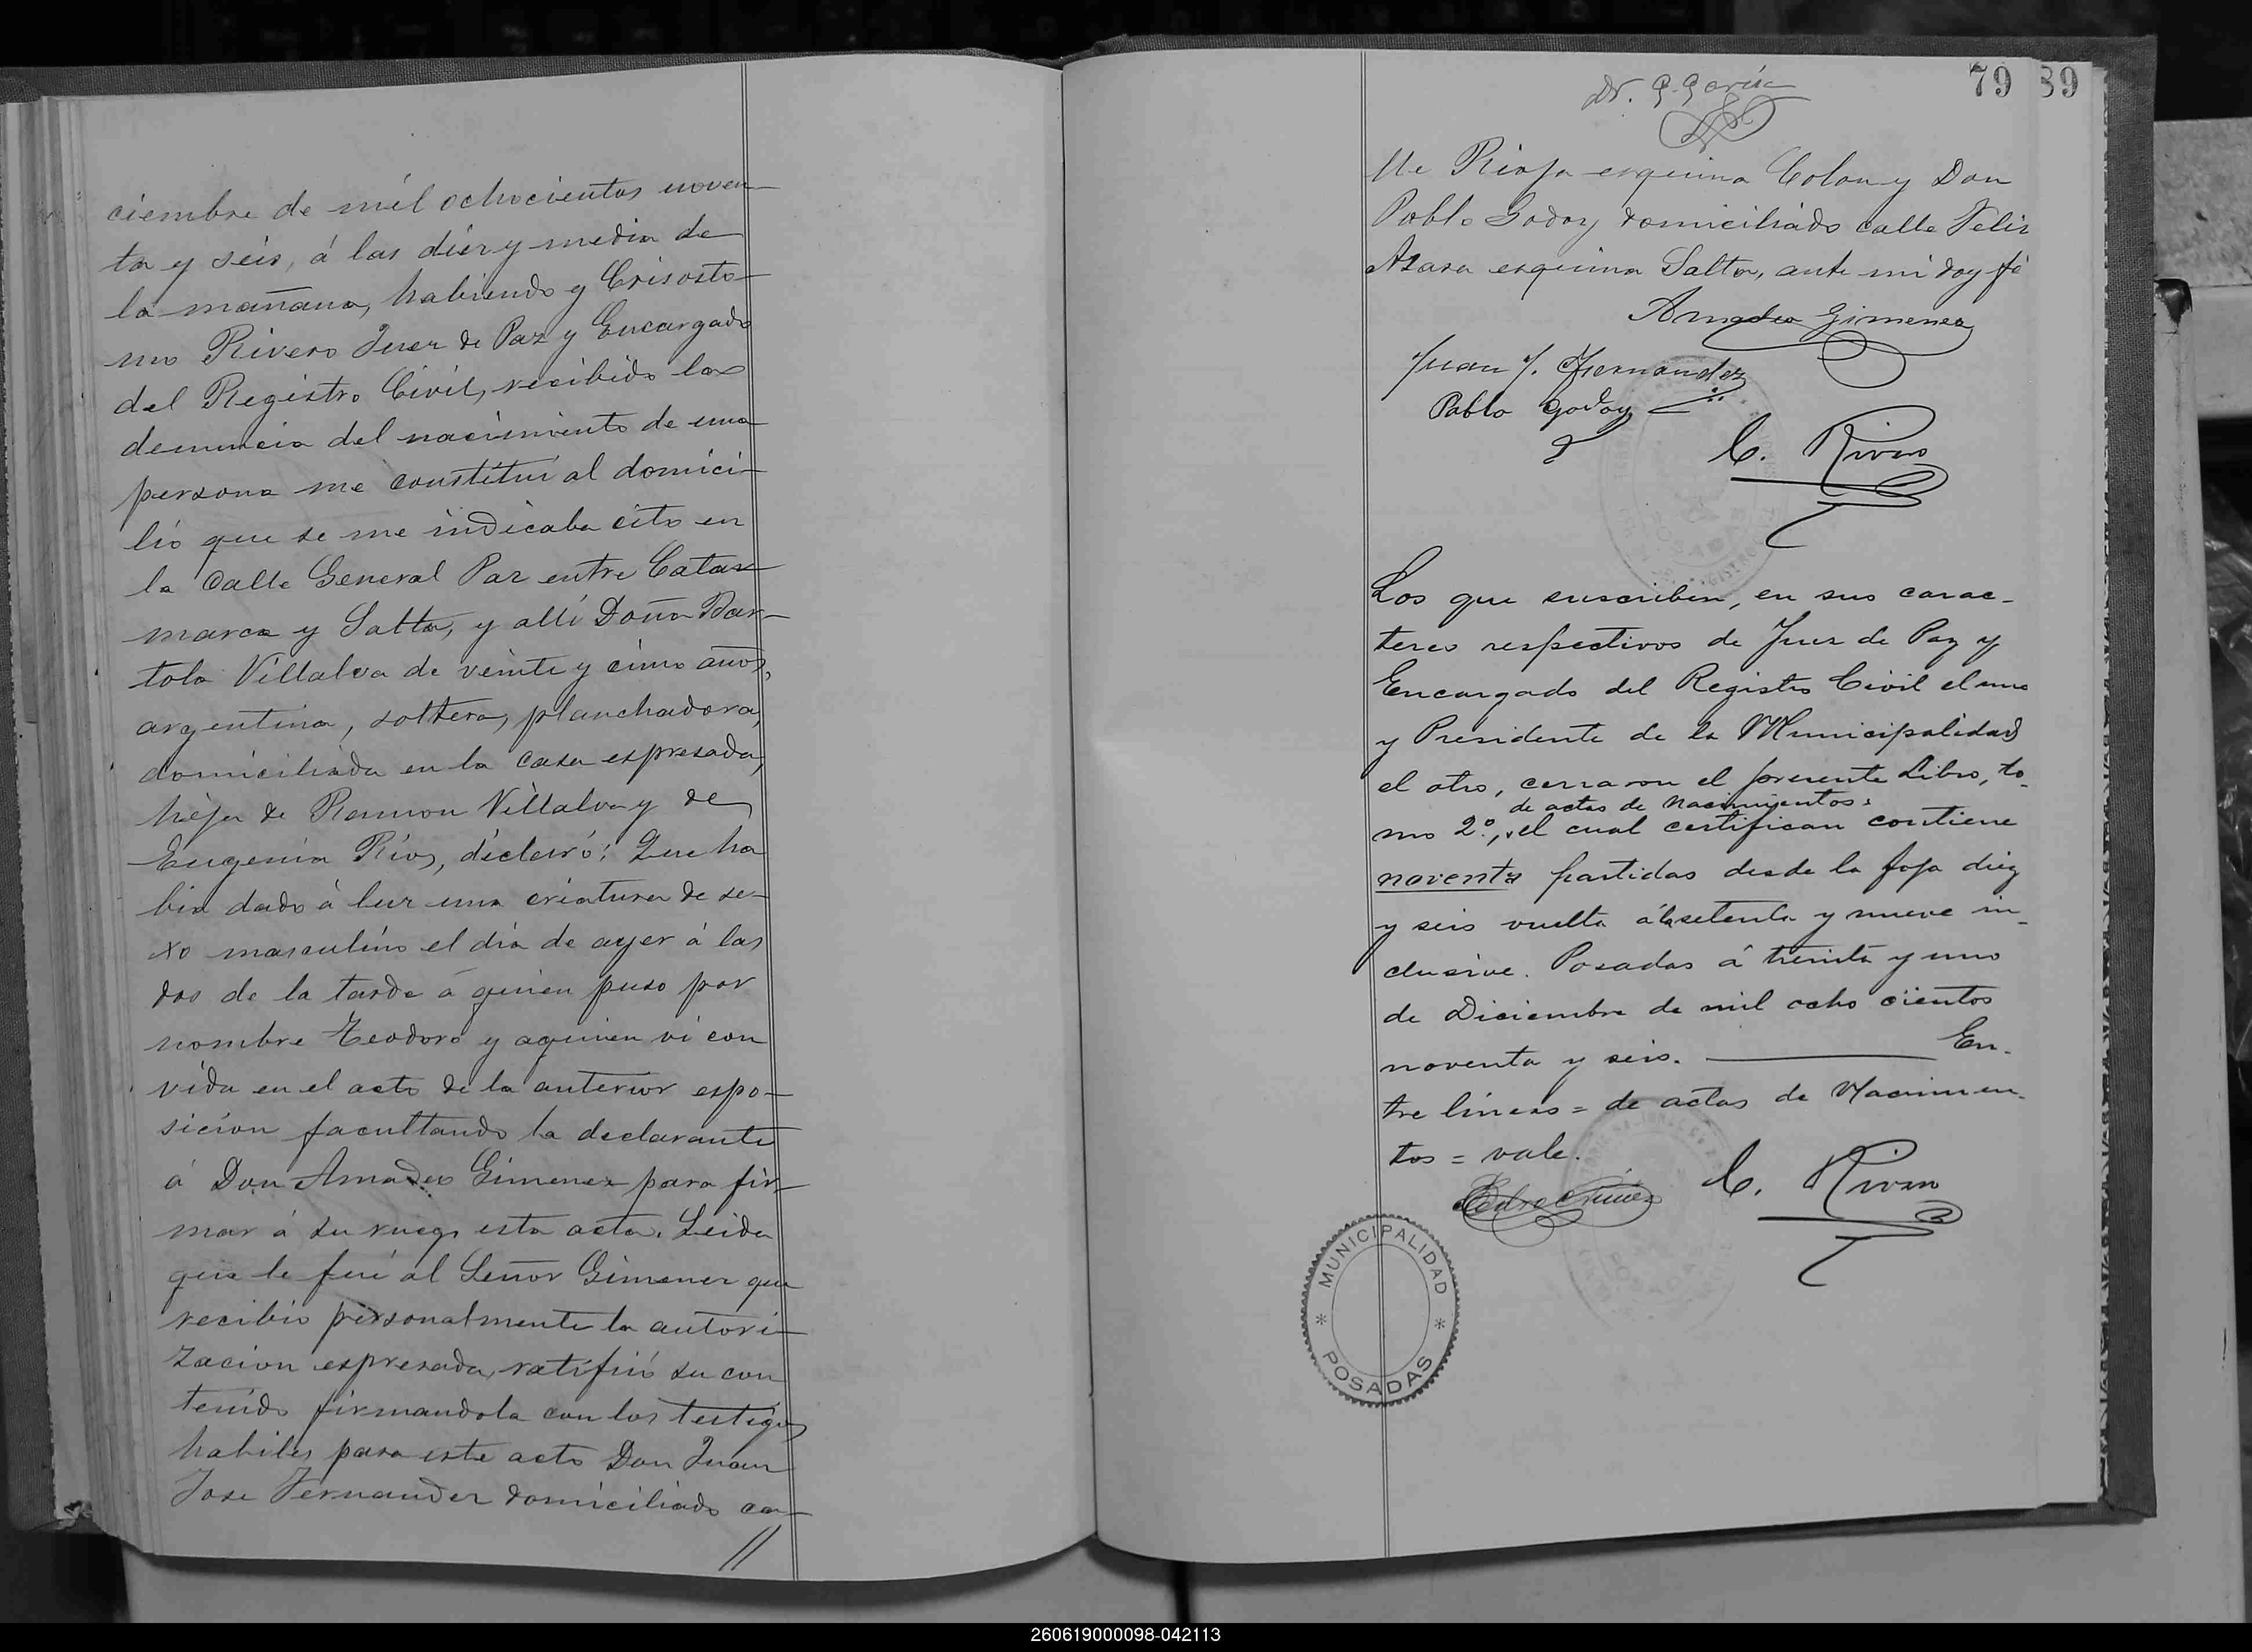 ciembre de mil ochocientos noven
ta y seis, á las diez y media de
la mañana, habiendo yo Crisosto-
mo Rivero Juez de Paz y Encargado
del Registro Civil, recibido la
denuncia del nacimiento de una
persona me constituí al domici-
lio que se me indicaba cito en
la Calle General Paz entre Cata-
marca y Salta, y allí Doña Bar-
tola Villalva de veinte y cinco años,
argentina, soltera, planchadora,
domiciliada en la casa espresada,
hija de Ramon Villalva y de
Eugenia Ríos, declaró: Que ha
bia dado á luz una criatura de se-
xo masculino el día de ayer á las
dos de la tarde á quien puso por
nombre Teodoro y aquien vi con
vida en el acto de la anterior espo-
sicion facultando la declarante
á Don Amadeo Gimenez para fir-
mar á su ruego esta acta. Leida
que le fué al Señor Gimenez que
recibió personalmente la autori-
zacion espresada, ratificó su con
tenido firmandola con los testigos
habiles para este acto Don Juan
Jose Fernandez domiciliado ca-
//
79 39
Dr. G. García
lle Rioja esquina Colon y Don
Pablo Godoy domiciliado calle Felix
Azara esquina Salta, ante mi doy fé
Amadeo Gimenez
Juan J. Fernandez
Pablo Godoy
C. Rivero
Los que suscriben, en sus carac-
teres respectivos de Juez de Paz y
Encargado del Registro Civil el uno
y Presidente de la Municipalidad
el otro, cerraron el presente Libro, to-
de actas de Nacimientos:
mo 2º., el cual certifican contiene
noventa partidas desde la foja diez
y seis vuelta á la setenta y nueve in-
clusive. Posadas á treinta y uno
de Diciembre de mil ocho cientos
noventa y seis. En-
tre líneas = de actas de Nacimien-
tos = vale.
C. Rivero
MUNICIPALIDAD
POSADAS
260619000098-042113